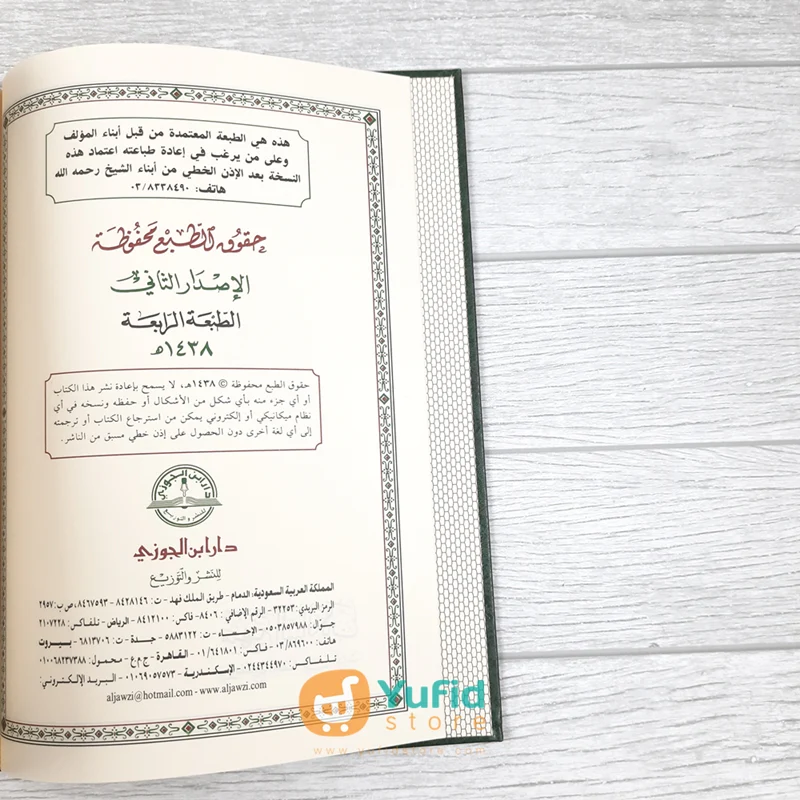 هذه هي الطبعة المعتمدة من قبل أبناء المؤلف
وعلى من يرغب في إعادة طباعته اعتماد هذه
النسخة بعد الإذن الخطي من أبناء الشيخ رحمه الله
هاتف: ٠٣/٨٣٣٨٤٩٠
حقوق الطبع محفوظة
الإصدار الثاني
الطبعة الرابعة
١٤٣٨هـ
حقوق الطبع محفوظة © ١٤٣٨هـ، لا يسمح بإعادة نشر هذا الكتاب
أو أي جزء منه بأي شكل من الأشكال أو حفظه ونسخه في أي
نظام ميكانيكي أو إلكتروني يمكن من استرجاع الكتاب أو ترجمته
إلى أي لغة أخرى دون الحصول على إذن خطي مسبق من الناشر.
دار ابن الجوزي
للنشر والتوزيع
دار ابن الجوزي
للنشر والتوزيع
المملكة العربية السعودية: الدمام - طريق الملك فهد - ت: ٨٤٢٨١٤٦ - ٨٤٦٧٥٩٣، ص ب: ٢٩٥٧
الرمز البريدي: ٣٢٢٥٣ - الرقم الإضافي: ٨٤٠٦ - فاكس: ٨٤١٢١٠٠ - الرياض - تلفاكس: ٢١٠٧٢٢٨
جوّال: ٠٥٠٣٨٥٧٩٨٨ - الإحساء - ت: ٥٨٨٣١٢٢ - جدة - ت: ٦٨١٣٧٠٦ - بيروت
هاتف: ٠٣/٨٦٩٦٠٠ - فاكس: ٠١/٦٤١٨٠١ - القاهرة - ج م ع - محمول: ٠١٠٠٦٨٢٣٧٣٨٨
تلفاكس: ٠٢٤٤٣٤٤٩٧٠ - الإسكندرية - ٠١٠٦٩٠٥٧٥٧٣ - البريد الإلكتروني:
aljawzi@hotmail.com - www.aljawzi.com
Yufid
store